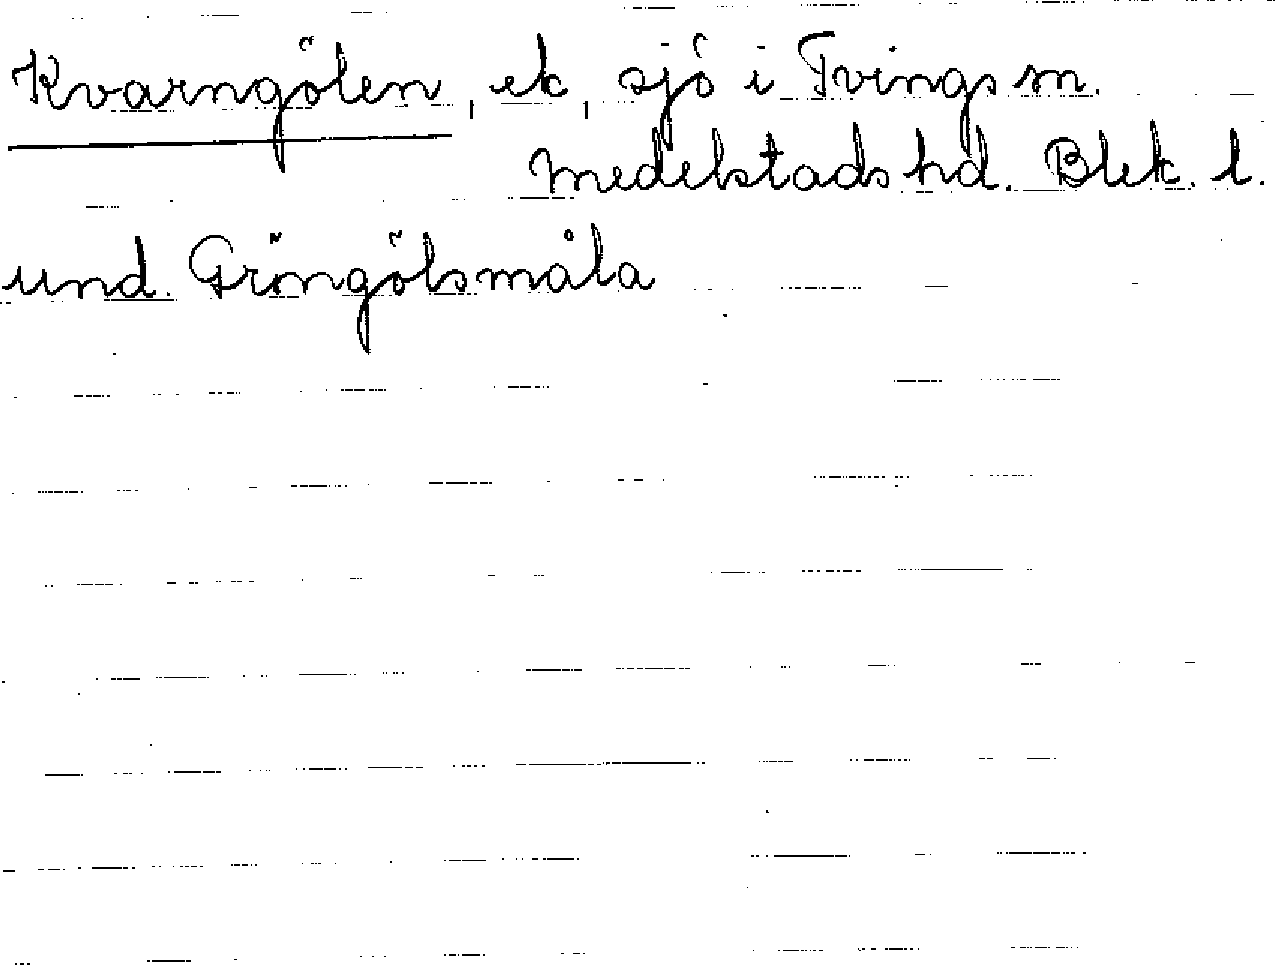 Kvarngölen, ek, sjö i Tvings sn.
Medelstads hd. Blek. l.
und. Gröngölsmåla